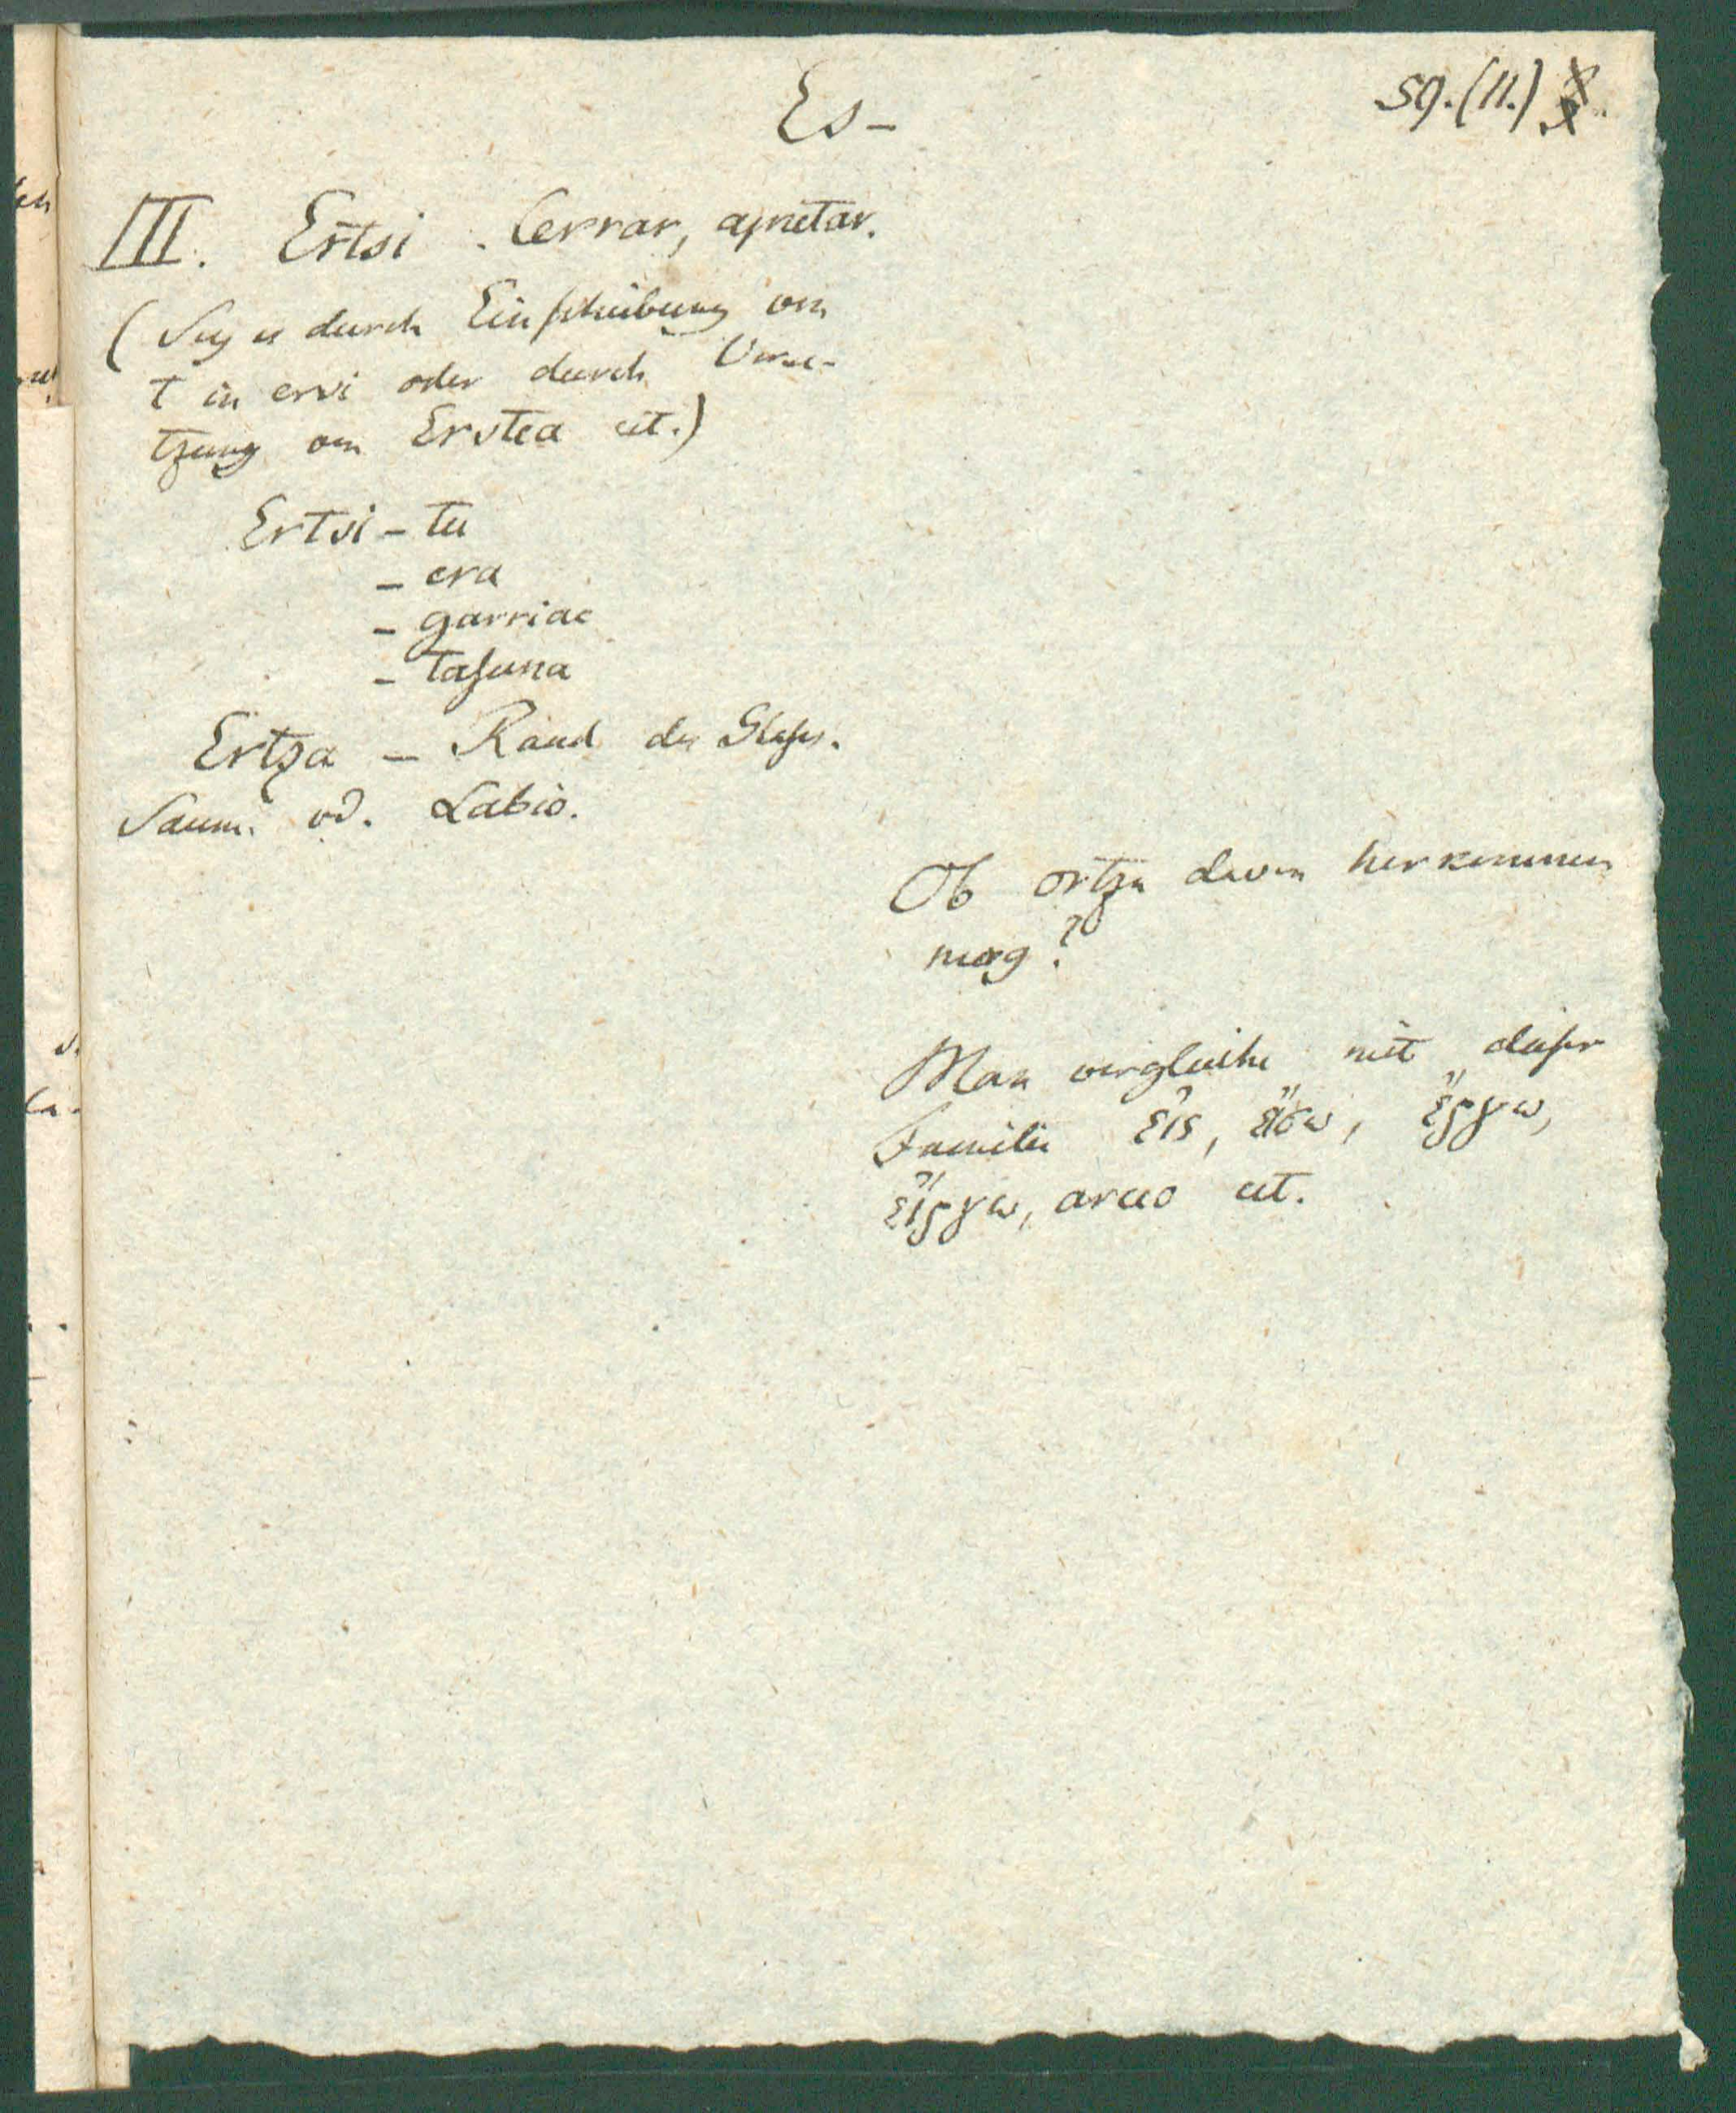 Es-
59. (11.)
III. Ertsi. Cerrar, apretar.
(Sey es durch Einschiebung von
t in ersi oder durch Verse-
tzung von Erstea cet.)
Ertsi - tu
- era
- garriac
- tasuna
Ertza - Rand des Glases.
Saum. od. Labio.
Ob ortza davon herkommen
mag?
Man vergleiche mit dieser
Familie εἰς, εἴσω, ἔργω,
εἴργω, arceo cet.